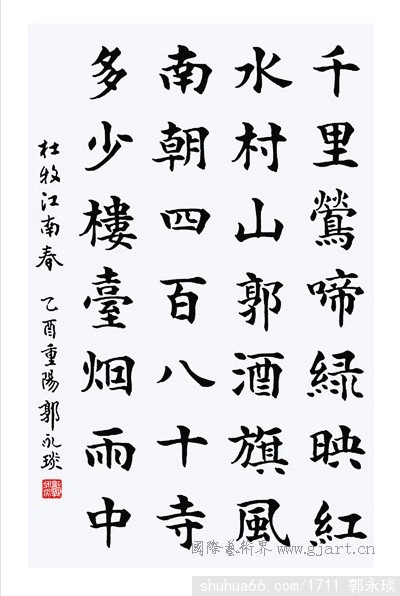 千里鶯啼緑映紅
水村山郭酒旗風
南朝四百八十寺
多少樓臺烟雨中
杜牧江南春 乙酉重陽郭永琰
國際藝術界 www.gjart.cn
shuhua66.com/1711 郭永琰